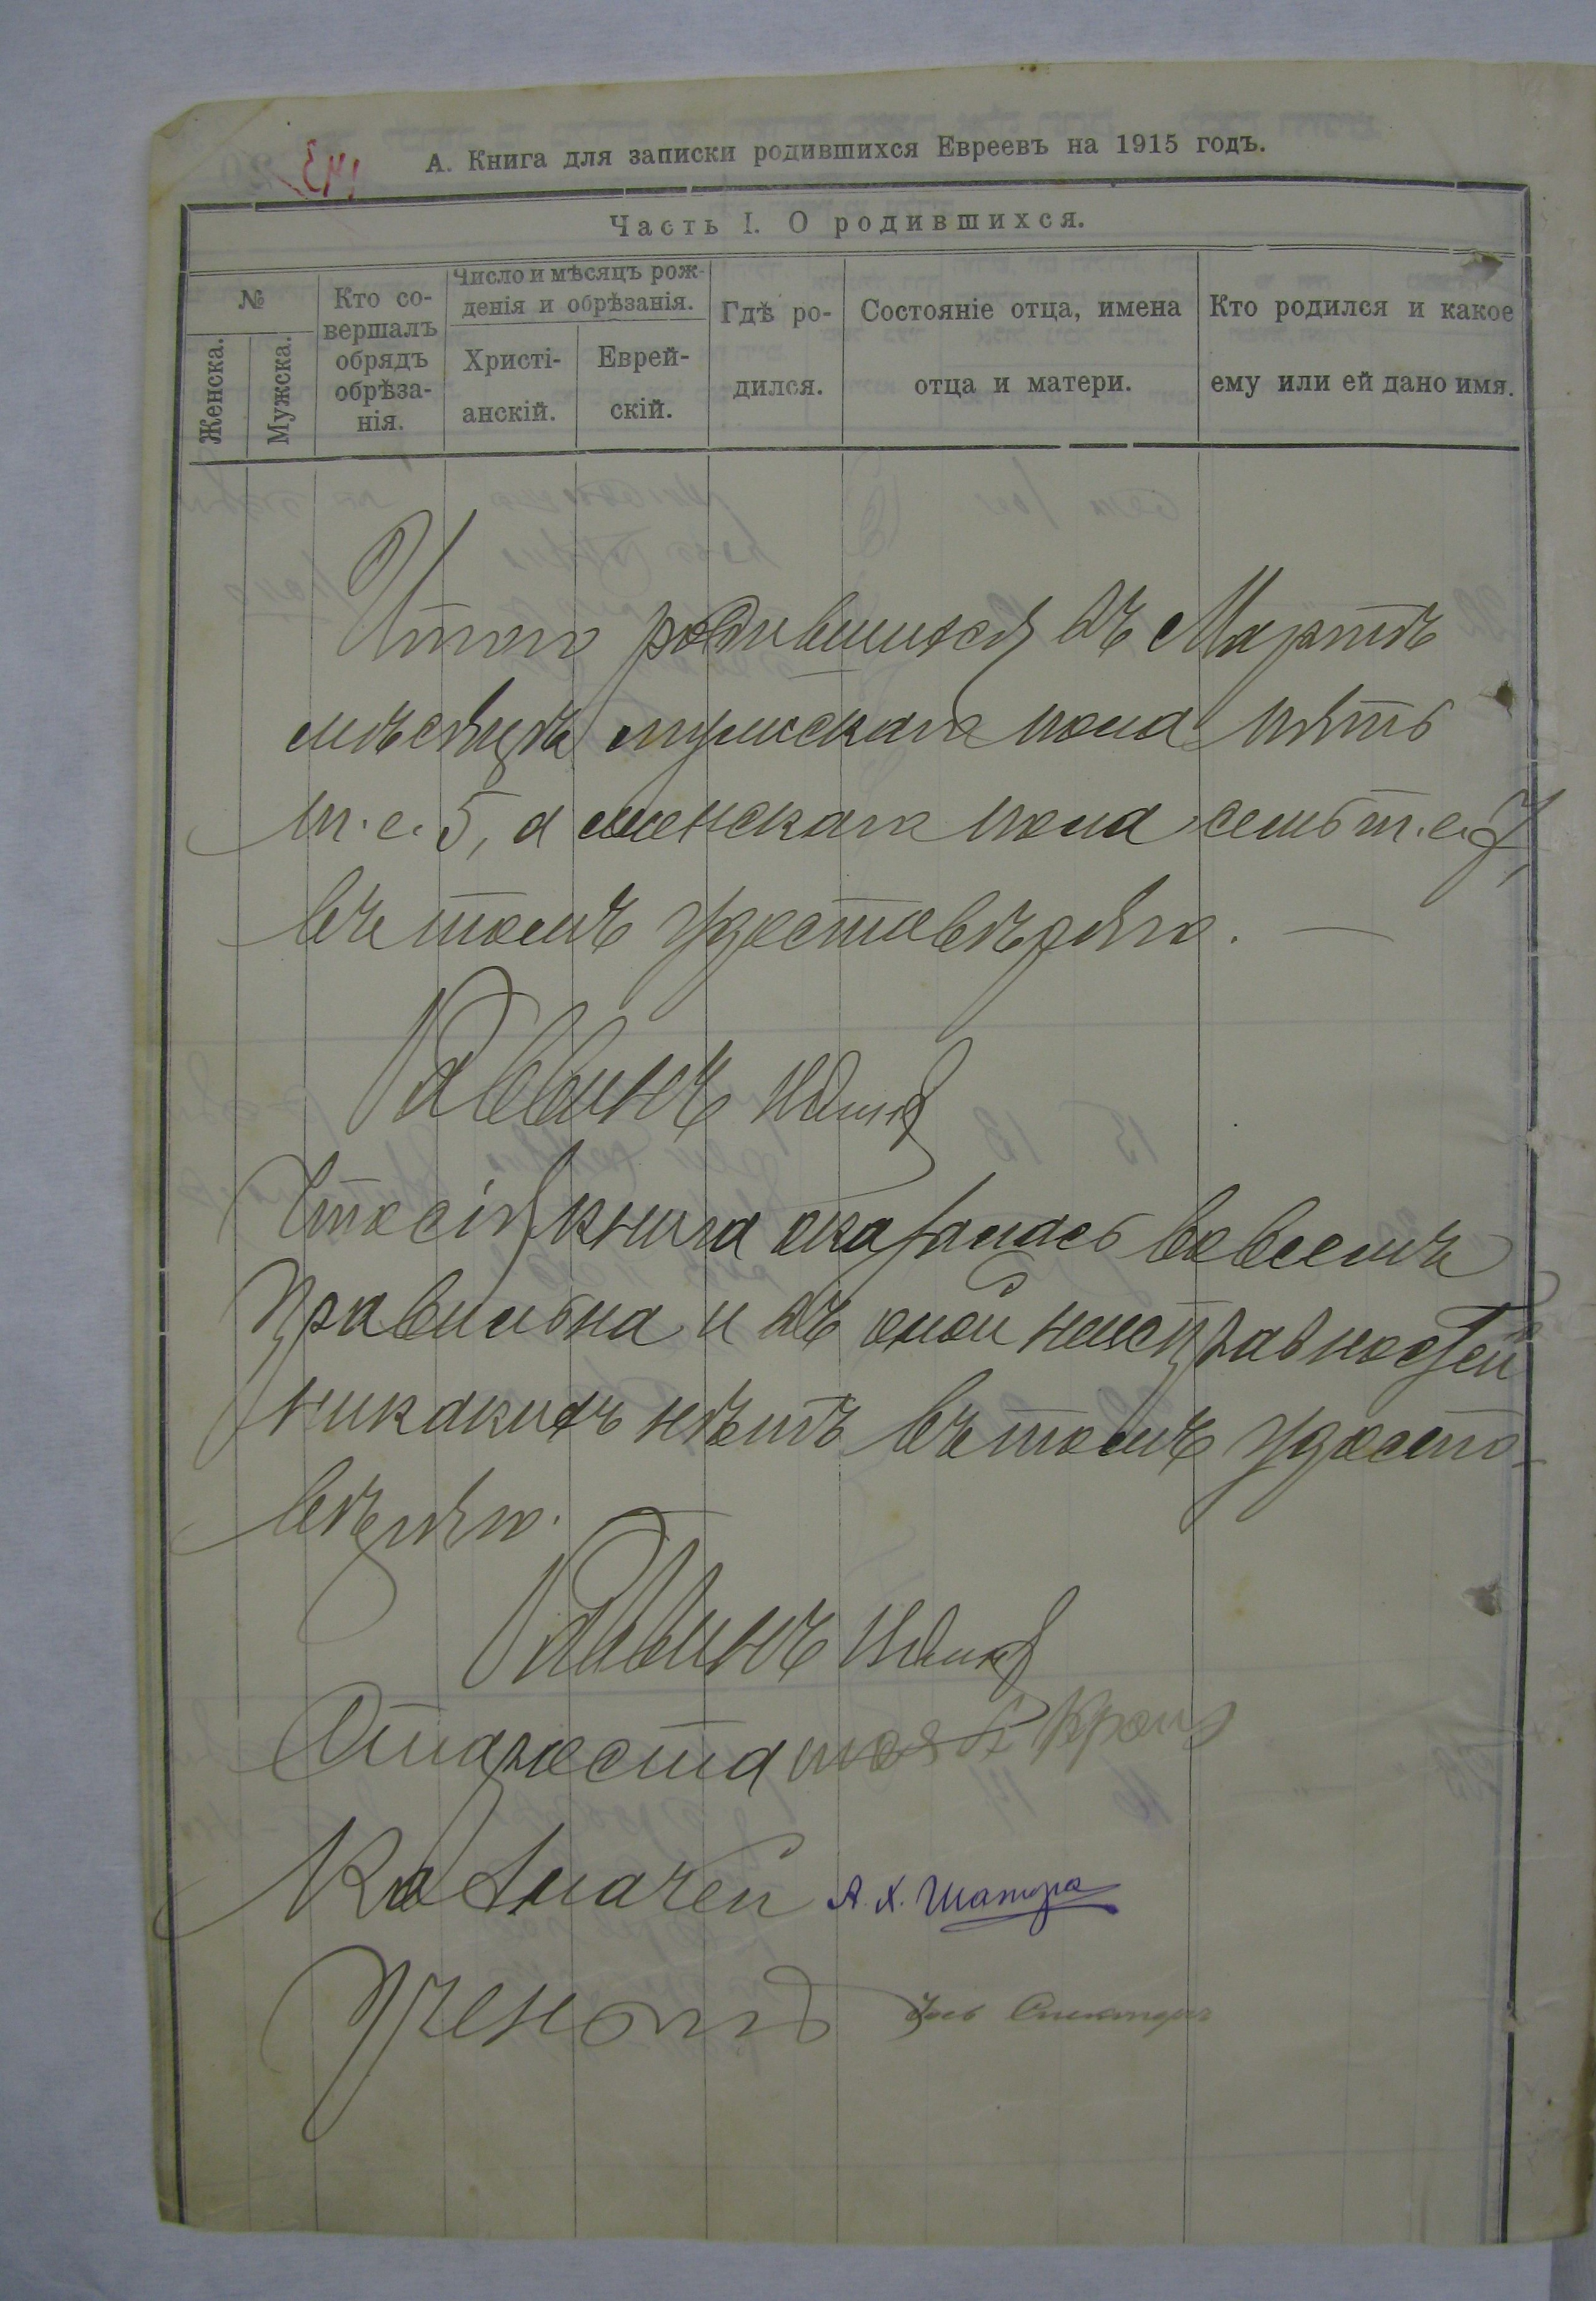 А. Книга для записки родившихся Евреевъ на 1915 годъ.
Часть I. О родившихся.
№
Женска.
Мужска.
Кто со-
вершалъ
обрядъ
обрѣза-
нія.
Число и мѣсяцъ рож-
денія и обрѣзанія.
Христі-
анскій.
Еврей-
скій.
Гдѣ ро-
дился.
Состояніе отца, имена
отца и матери.
Кто родился и какое
ему или ей дано имя.
Итого родившихся въ Мартѣ
мѣсяцѣ мужскаго пола пять
т. е. 5, а женскаго пола семь т. е. 7,
въ томъ удостовѣряю. —
Раввинъ
Что сія книга оказалась во всемъ
правильна и въ оной неисправностей
никакихъ нѣтъ въ томъ удосто-
вѣряю.
Раввинъ
Староста
Казначей А. Х. Шатура
Ученый